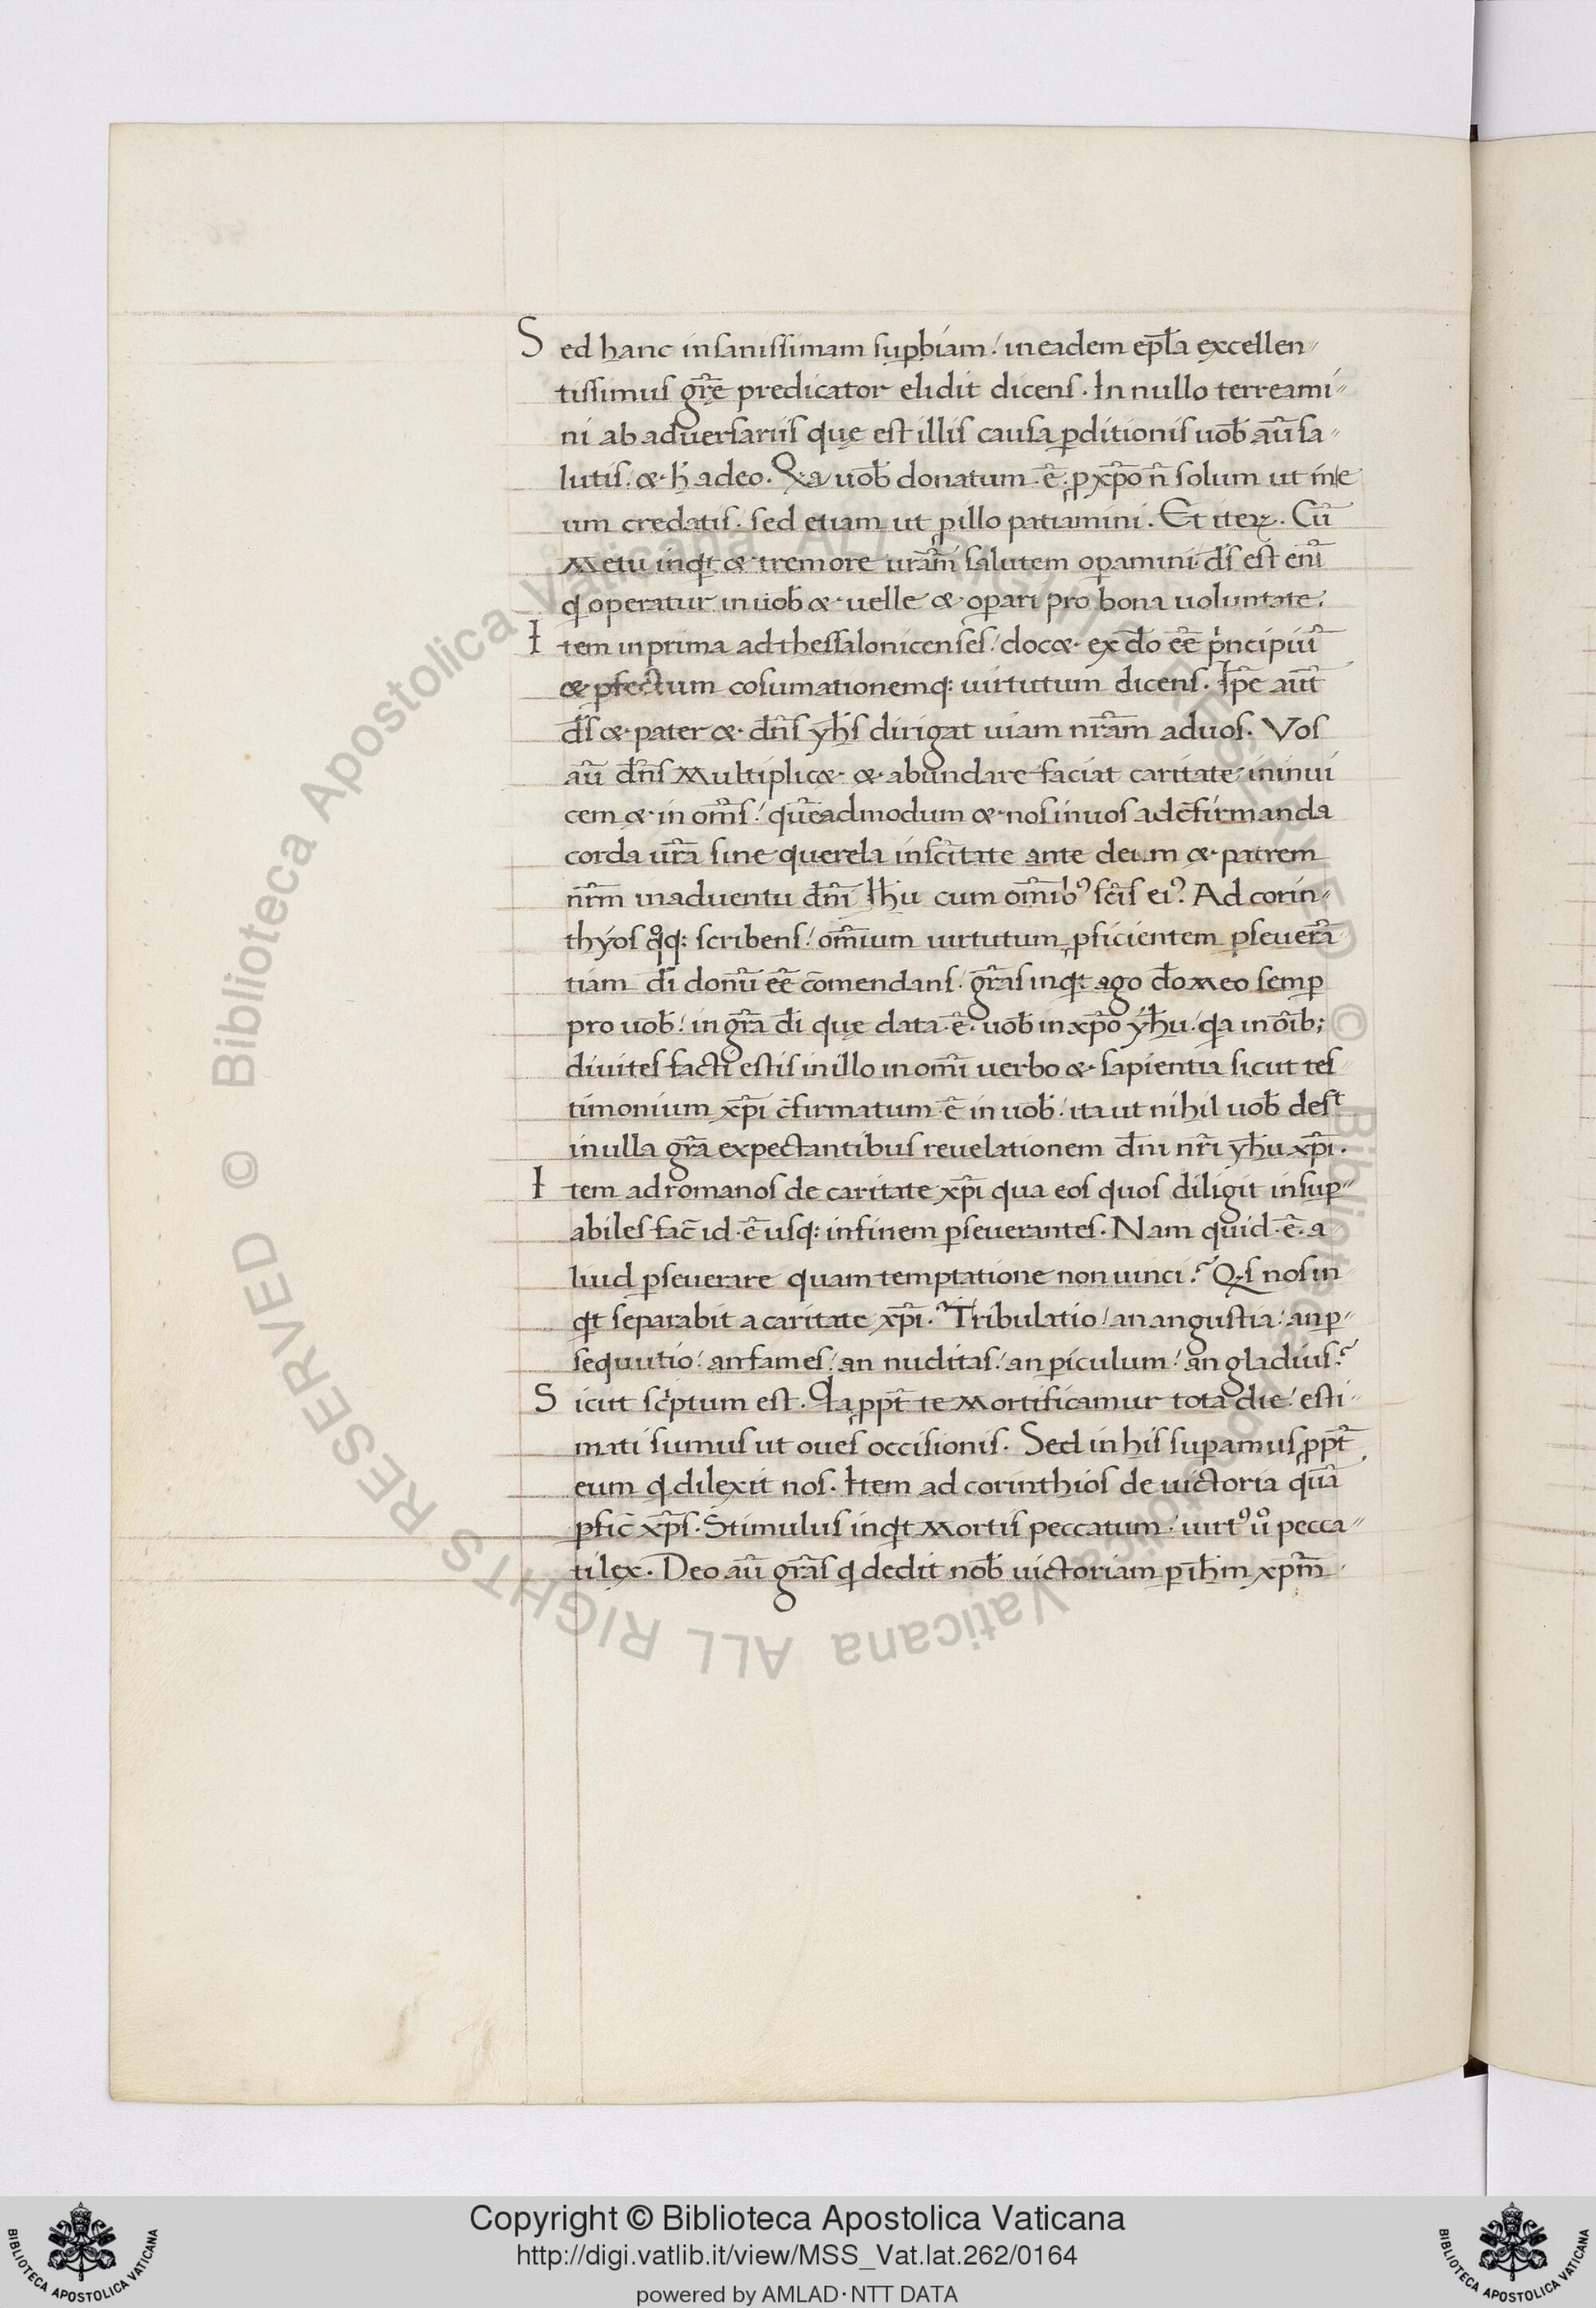 Sed hanc insanissimam supbiam / in eadem ep̄la excellen-
tissimus gr̄e predicator elidit dicens. In nullo terreami-
ni ab adversariis que est illis causa pditionis uob̄ aū sa-
lutis. & h̄ a deo. Qa uob̄ donatum ē. p xp̄o n̄ solum ut in e
um credatis. sed etiam ut p illo patiamini. Et iteꝝ. Cū
Metu inqt & tremore ur̄am salutem opamini d̄s est enī
q operatur in uob̄ & uelle & opari pro bona uoluntate.
Item in prima ad thessalonicenses / doc& ex d̄o eē pncipiū
& pfectum cosumationemq: uirtutum dicens. Ip̄e aut̄
d̄s & pater & dn̄s yh̄s dirigat uiam nr̄am ad uos. Vos
aū dn̄s Multiplic& & abundare faciat caritate in inui
cem & in om̄s / quēadmodum & nos in uos ad c̄firmanda
corda ur̄a sine querela in sc̄itate ante deum & patrem
nr̄m in aduentu dn̄i Ih̄u cum om̄ibꝰ sc̄is eiꝰ. Ad corin-
thyos qq: scribens / om̄ium uirtutum pficientem pseuerā
tiam d̄i donū eē c̄omendans. gr̄as inqt ago d̄o meo semp
pro uob̄ / in gr̄a d̄i que data ē. uob̄ in xp̄o yh̄u. qa in oīb;
diuites facti estis in illo in om̄i uerbo & sapientia sicut tes
timonium xp̄i c̄firmatum ē in uob̄ / ita ut nihil uob̄ dest
in ulla gr̄a expectantibus reuelationem dn̄i nr̄i yh̄u xp̄i.
Item ad romanos de caritate xp̄i qua eos quos diligit insup-
abiles fac̄ id ē usq: in finem pseuerantes. Nam quid ē. a
liud pseuerare quam temptatione non uinci? Qs nos in
qt separabit a caritate xp̄i. Tribulatio / an angustia / an p-
sequutio / an fames / an nuditas / an piculum / an gladius?
Sicut scptum est. Qa ppt̄ te Mortificamur tota die / esti-
mati sumus ut oues occisionis. Sed in his supamus ppt̄
eum q dilexit nos. Item ad corinthios de uictoria quā
pfic̄ xp̄s. Stimulus inqt Mortis peccatum. uirtꝰ ū pecca-
ti lex. Deo aū gr̄as q dedit nob̄ uictoriam p ih̄m xp̄m
Copyright © Biblioteca Apostolica Vaticana
http://digi.vatlib.it/view/MSS_Vat.lat.262/0164
powered by AMLAD·NTT DATA
BIBLIOTECA APOSTOLICA VATICANA
BIBLIOTECA APOSTOLICA VATICANA
© Biblioteca Apostolica Vaticana ALL RIGHTS RESERVED © Biblioteca Apostolica Vaticana ALL RIGHTS RESERVED